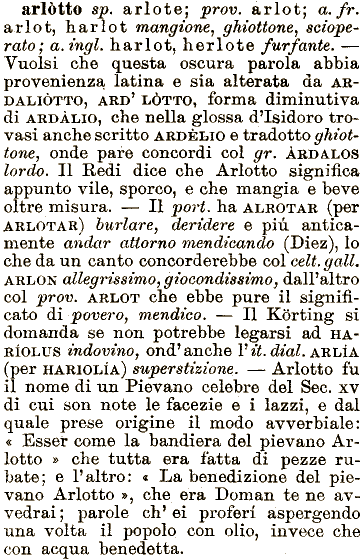 arlòtto sp. arlote; prov. arlot; a. fr.
arlot, harlot mangione, ghiottone, sciope-
rato; a. ingl. harlot, herlote furfante. —
Vuolsi che questa oscura parola abbia
provenienza latina e sia alterata da AR-
DALIÒTTO, ARD' LÒTTO, forma diminutiva
di ARDÀLIO, che nella glossa d'Isidoro tro-
vasi anche scritto ARDÈLIO e tradotto ghiot-
tone, onde pare concordi col gr. ÀRDALOS
lordo. Il Redi dice che Arlotto significa
appunto vile, sporco, e che mangia e beve
oltre misura. — Il port. ha ALROTAR (per
ARLOTAR) burlare, deridere e più antica-
mente andar attorno mendicando (Diez), lo
che da un canto concorderebbe col celt. gall.
ARLON allegrissimo, giocondissimo, dall'altro
col prov. ARLOT che ebbe pure il signifi-
cato di povero, mendico. — Il Körting si
domanda se non potrebbe legarsi ad HA-
RÍOLUS indovino, ond'anche l'it. dial. ARLÍA
(per HARIOLÍA) superstizione. — Arlotto fu
il nome di un Pievano celebre del Sec. XV
di cui son note le facezie e i lazzi, e dal
quale prese origine il modo avverbiale:
« Esser come la bandiera del pievano Ar-
lotto » che tutta era fatta di pezze ru-
bate; e l'altro: « La benedizione del pie-
vano Arlotto », che era Doman te ne av-
vedrai; parole ch' ei proferí aspergendo
una volta il popolo con olio, invece che
con acqua benedetta.